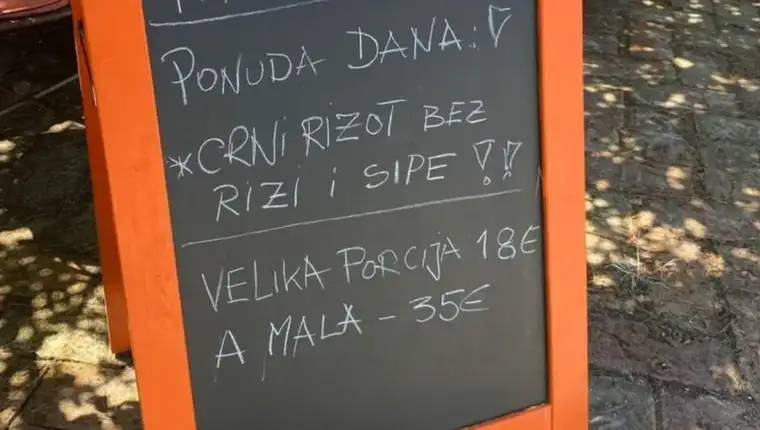 PONUDA DANA:!
*CRNI RIZOT BEZ
RIZI i SIPE !!
VELIKA PORCIJA 18€
A MALA - 35€